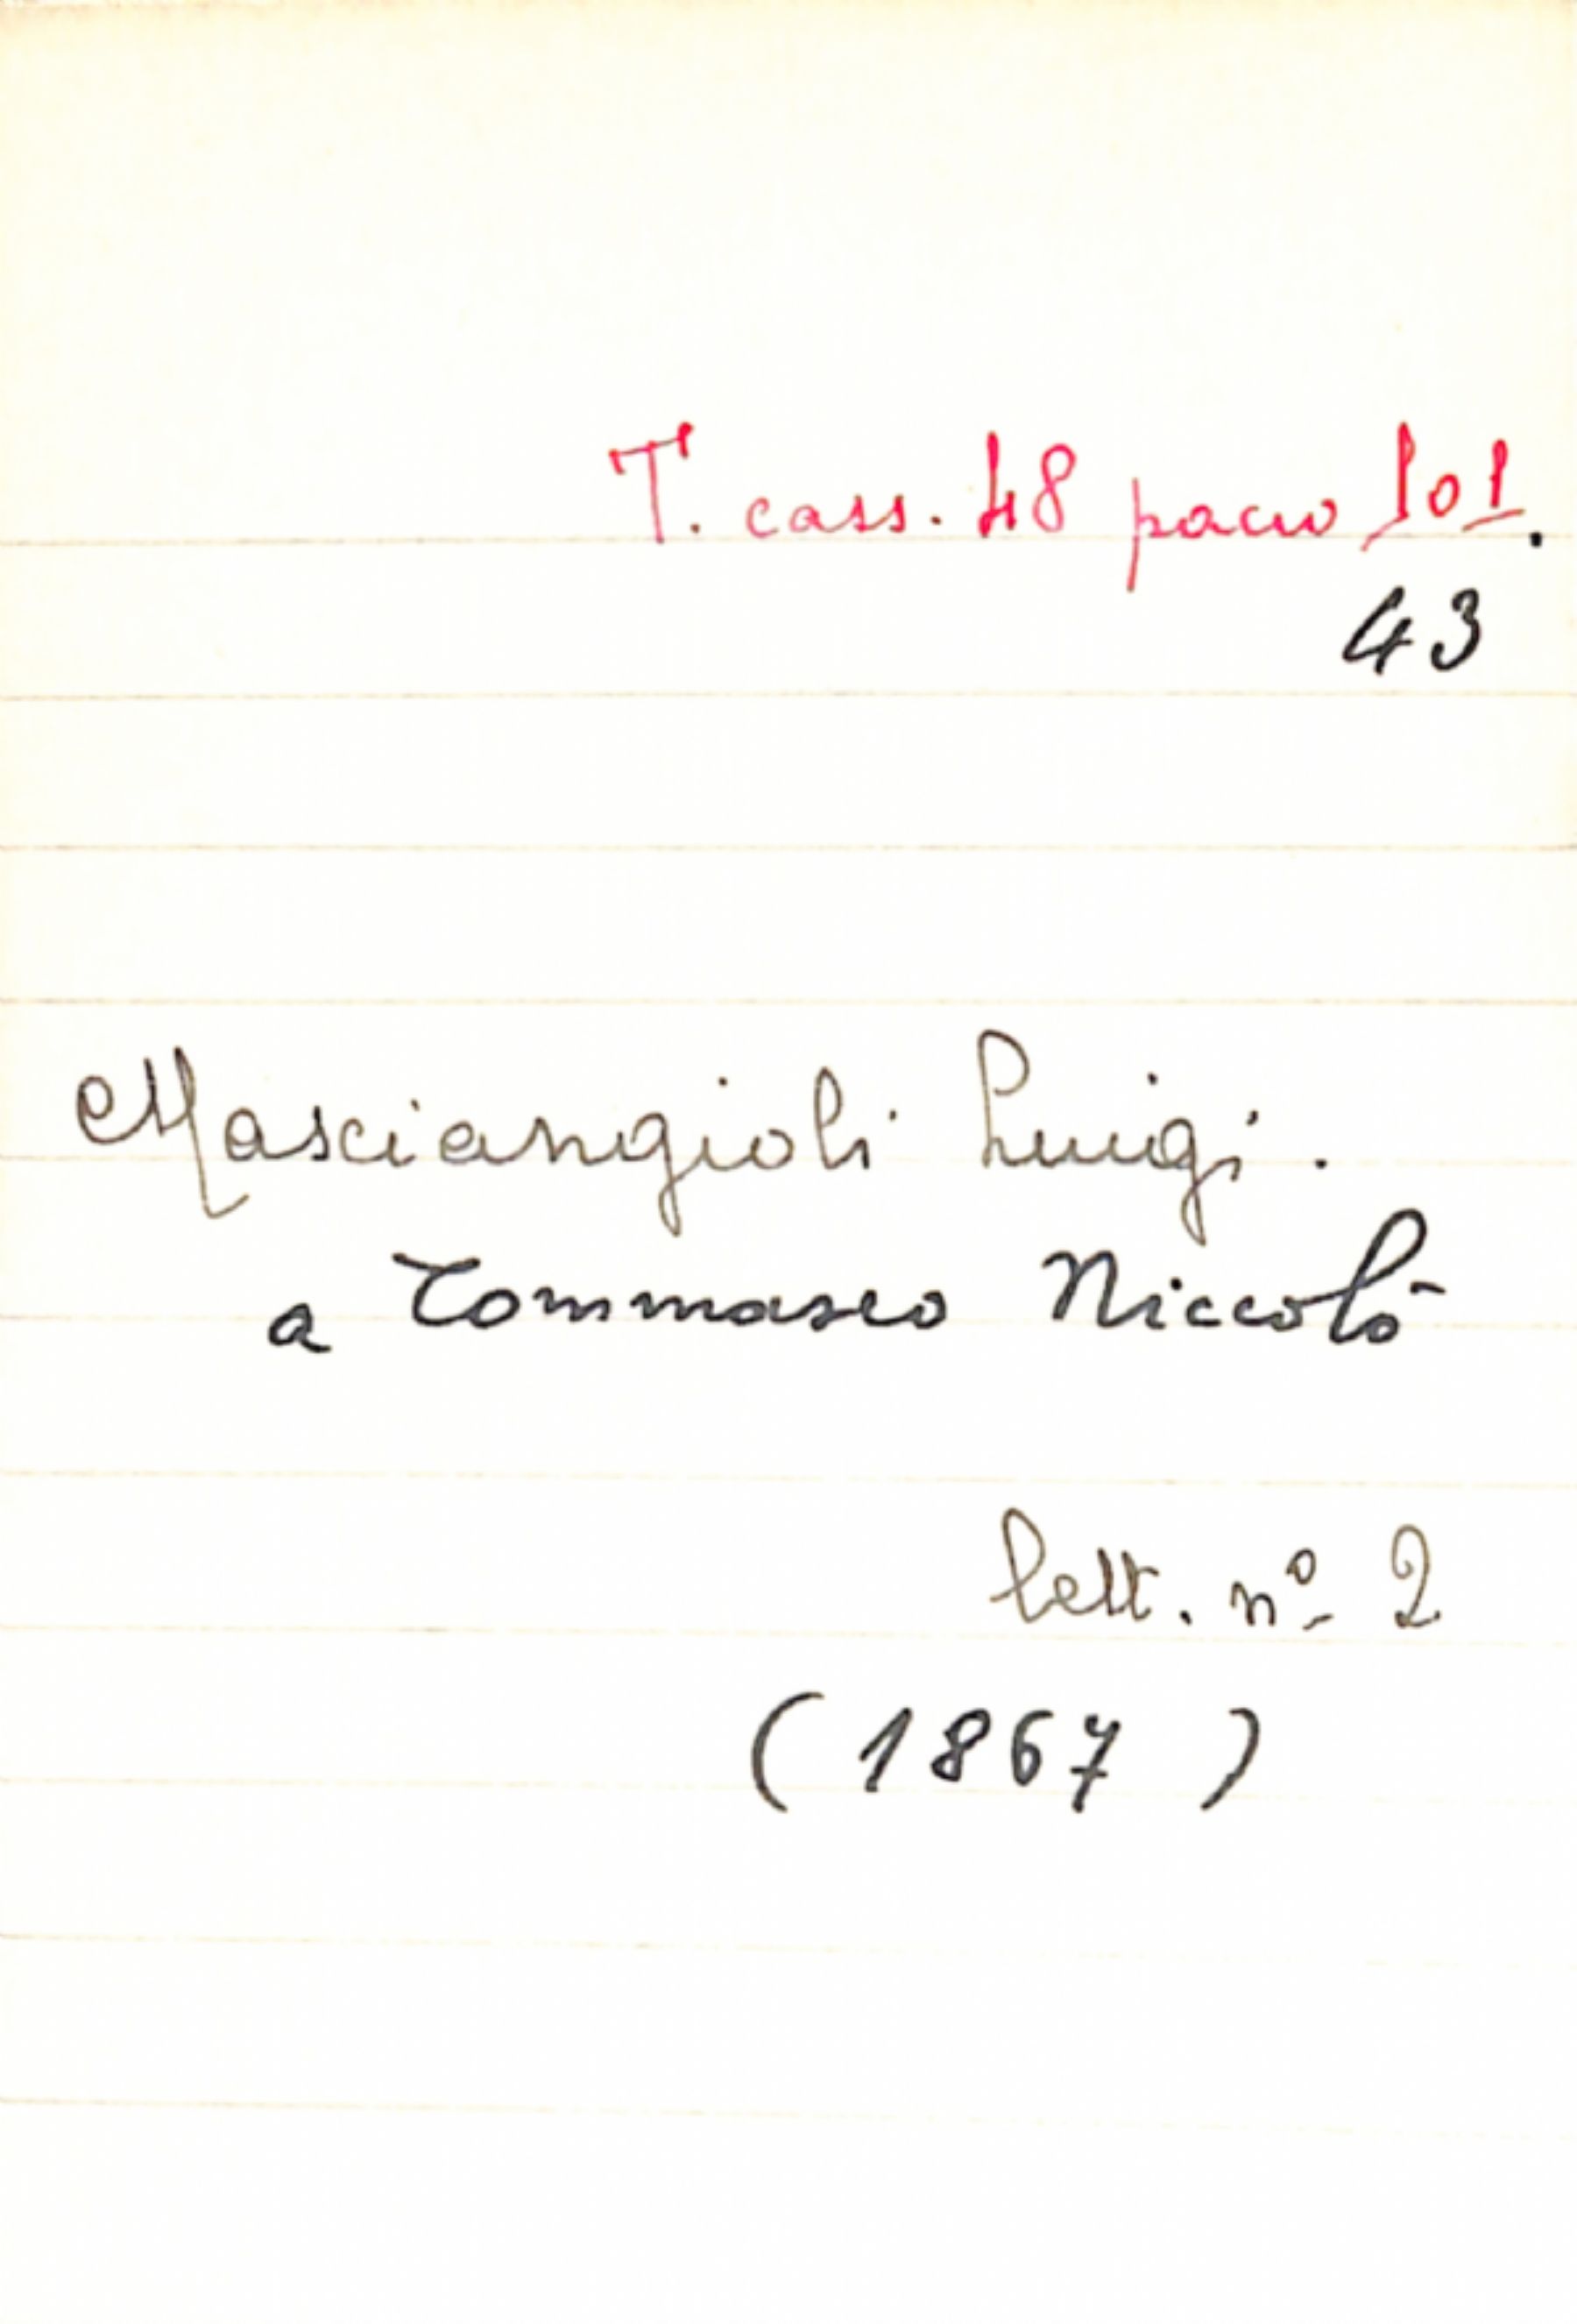 T. cass. 48 pacco 101.
43
Masciangioli Luigi.
a Tommaseo Niccolò
lett. nº 2
(1867)